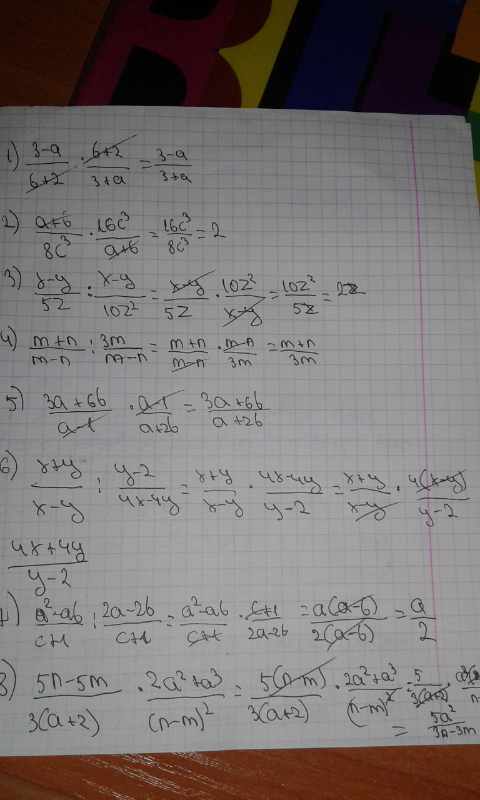 1) (3-a)/(b+2) · (b+2)/(3+a) = (3-a)/(3+a)
2) (a+b)/(8c³) · (16c³)/(a+b) = (16c³)/(8c³) = 2
3) (x-y)/(5z) : (x-y)/(10z²) = (x-y)/(5z) · (10z²)/(x-y) = (10z²)/(5z) = 2z
4) (m+n)/(m-n) : (3m)/(m-n) = (m+n)/(m-n) · (m-n)/(3m) = (m+n)/(3m)
5) (3a+6b)/(a-1) · (a-1)/(a+2b) = (3a+6b)/(a+2b)
6) (x+y)/(x-y) : (y-2)/(4x-4y) = (x+y)/(x-y) · (4x-4y)/(y-2) = (x+y)/(x-y) · (4(x-y))/(y-2)
(4x+4y)/(y-2)
7) (a²-ab)/(c+1) : (2a-2b)/(c+1) = (a²-ab)/(c+1) · (c+1)/(2a-2b) = (a(a-b))/(2(a-b)) = a/2
8) (5n-5m)/(3(a+2)) · (2a²+a³)/(n-m)² = (5(n-m))/(3(a+2)) · (2a²+a³)/(n-m)² = 5/(3(a+2)) ·
= (5a²)/(3n-3m)